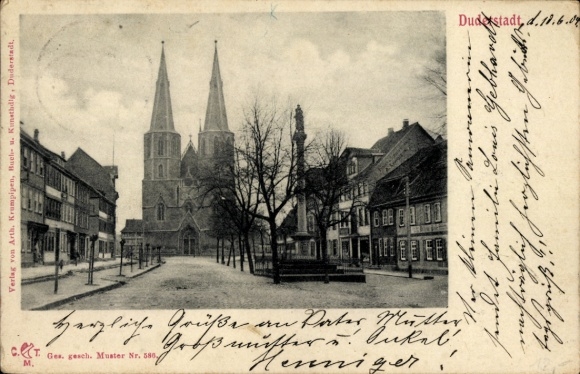 Duderstadt, d. 18.6.04
Verlag von Arth. Krumpipen, Buch- u. Kunsthdlg., Duderstadt.
Herzliche Grüße an Vater Mutter
Großmutter u. Onkel!
Henniger!
C. T.
M.
Ges. gesch. Muster Nr. 586.
Der kleinen
sendet Familie Louis Gebhardt
nachträglich herzlichsten